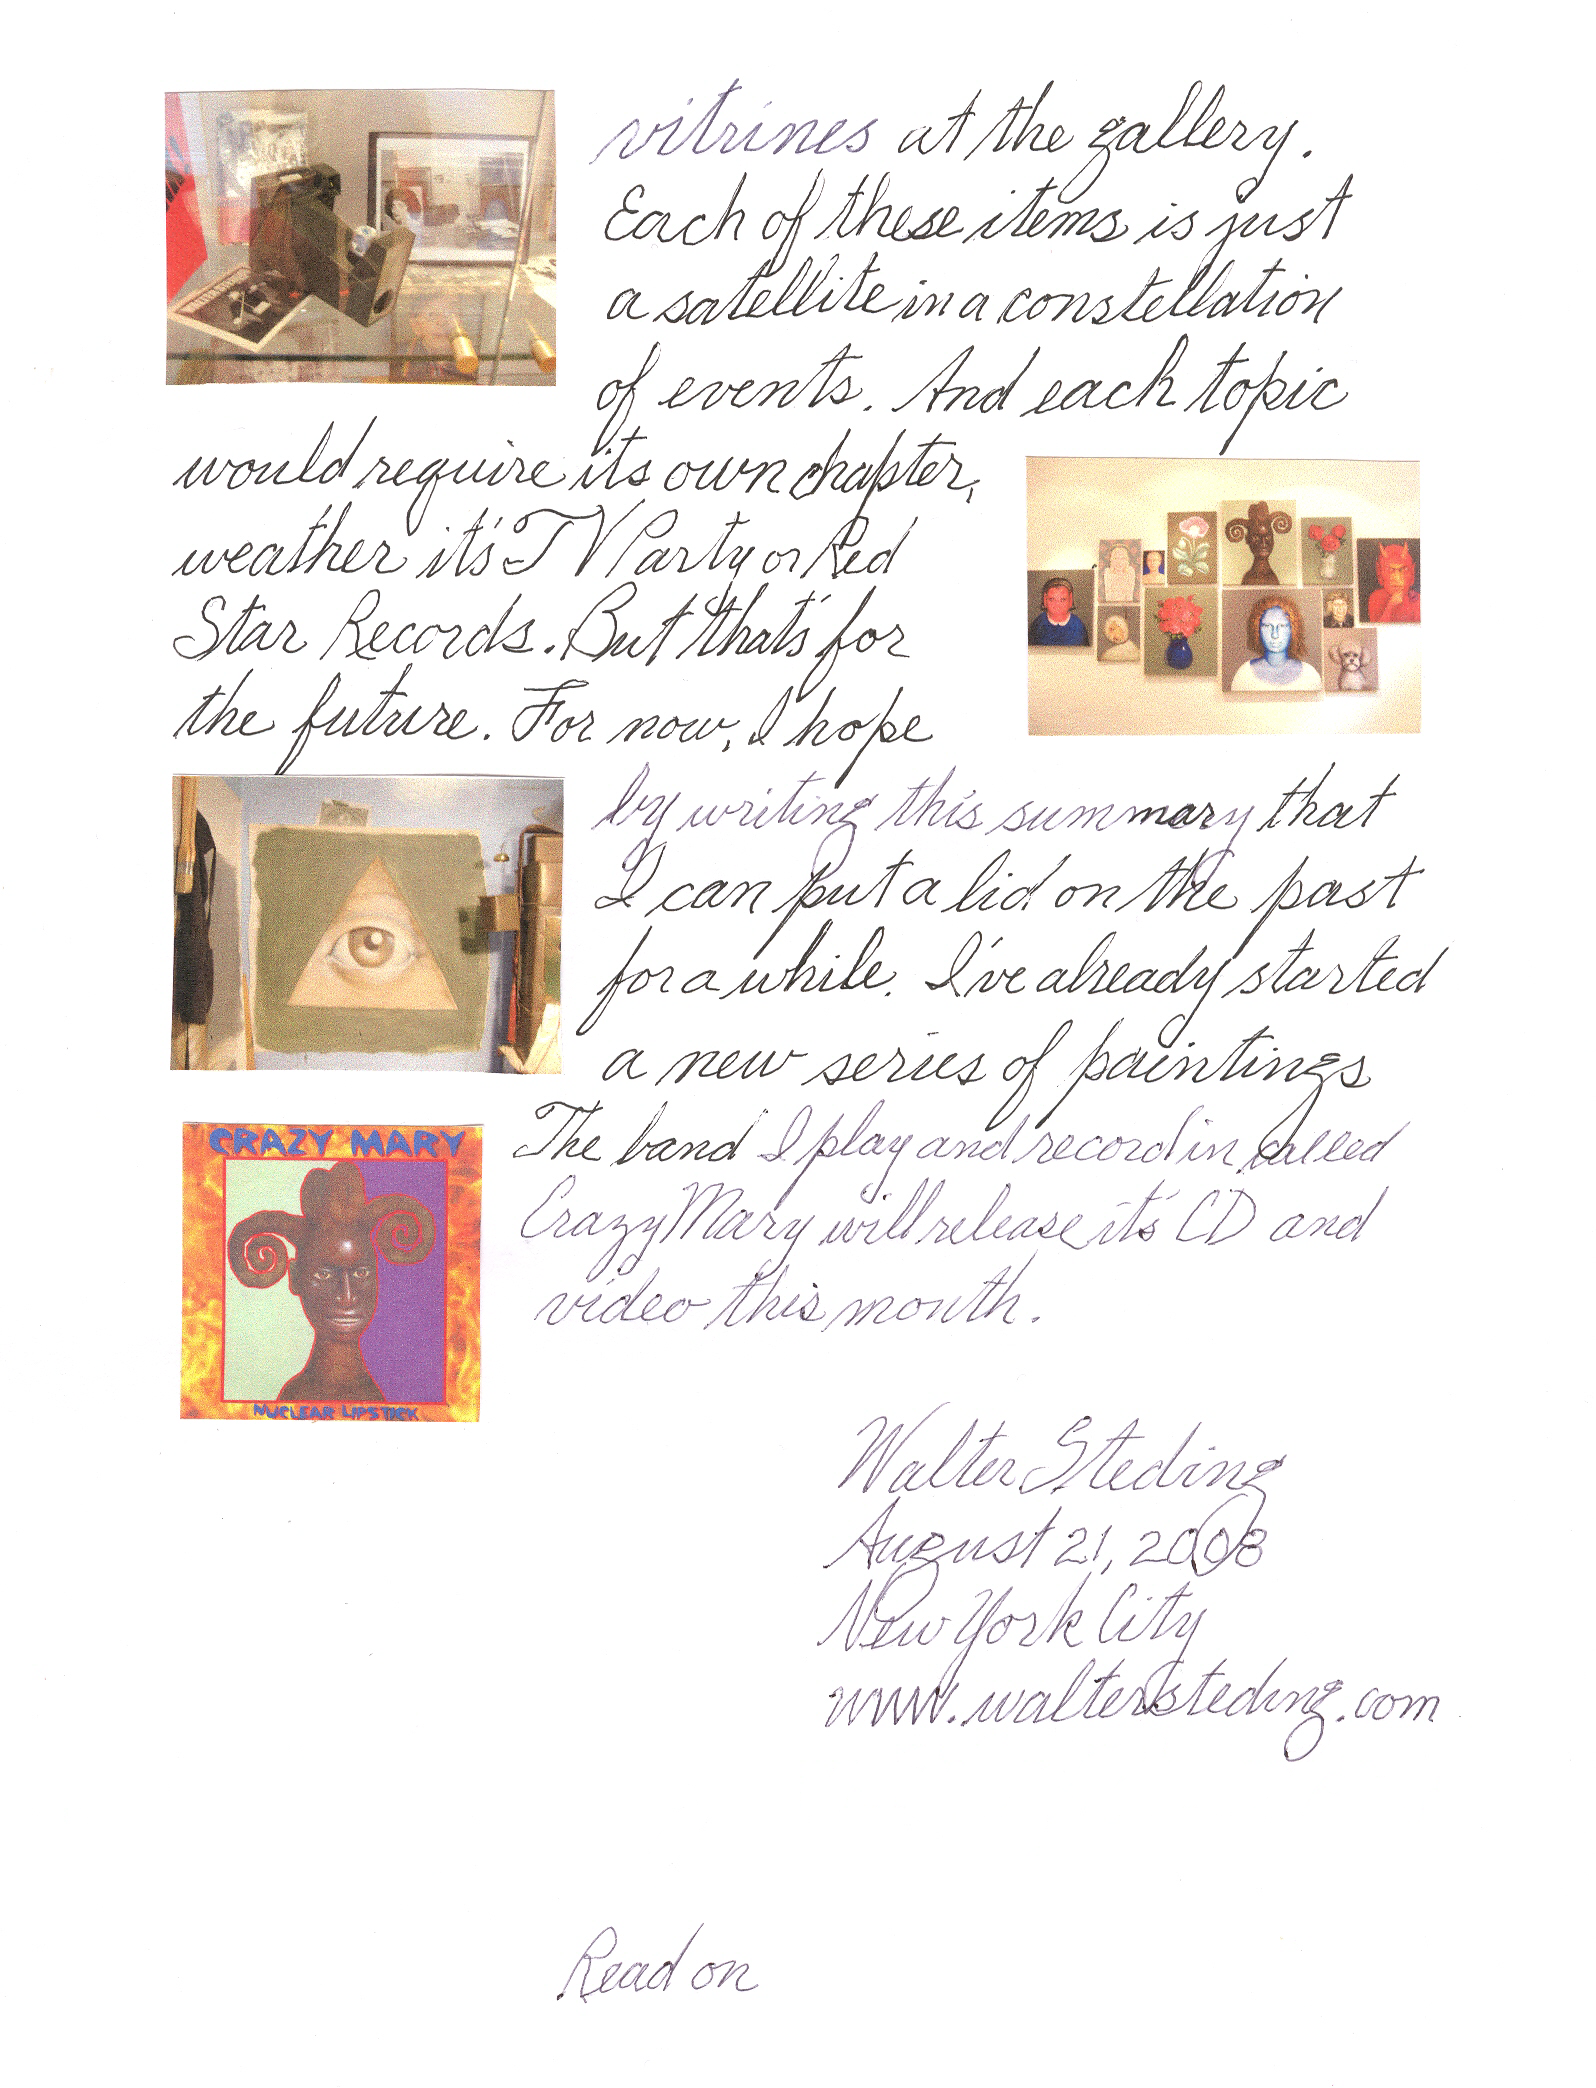 vitrines at the gallery.
Each of these items is just
a satellite in a constellation
of events. And each topic
would require its own chapter,
weather it's TV Party or Red
Star Records. But that's for
the future. For now, I hope
by writing this summary that
I can put a lid on the past
for a while. I've already started
a new series of paintings
CRAZY MARY
The band I play and record in called
Crazy Mary will release it's CD and
video this month.
NUCLEAR LIPSTICK
Walter Steding
August 21, 2008
New York City
www.waltersteding.com
Read on